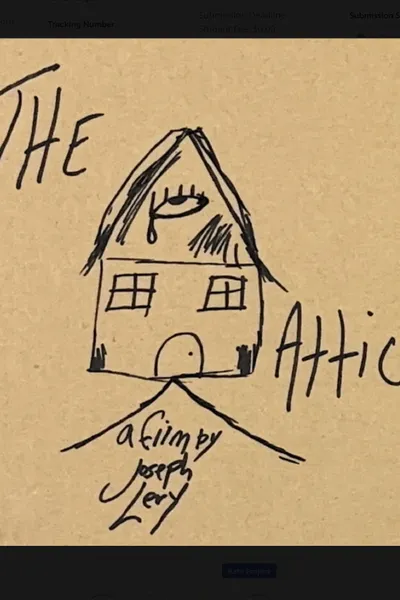 Tracking Number
THE
Attic
a film by
Joseph
Lery